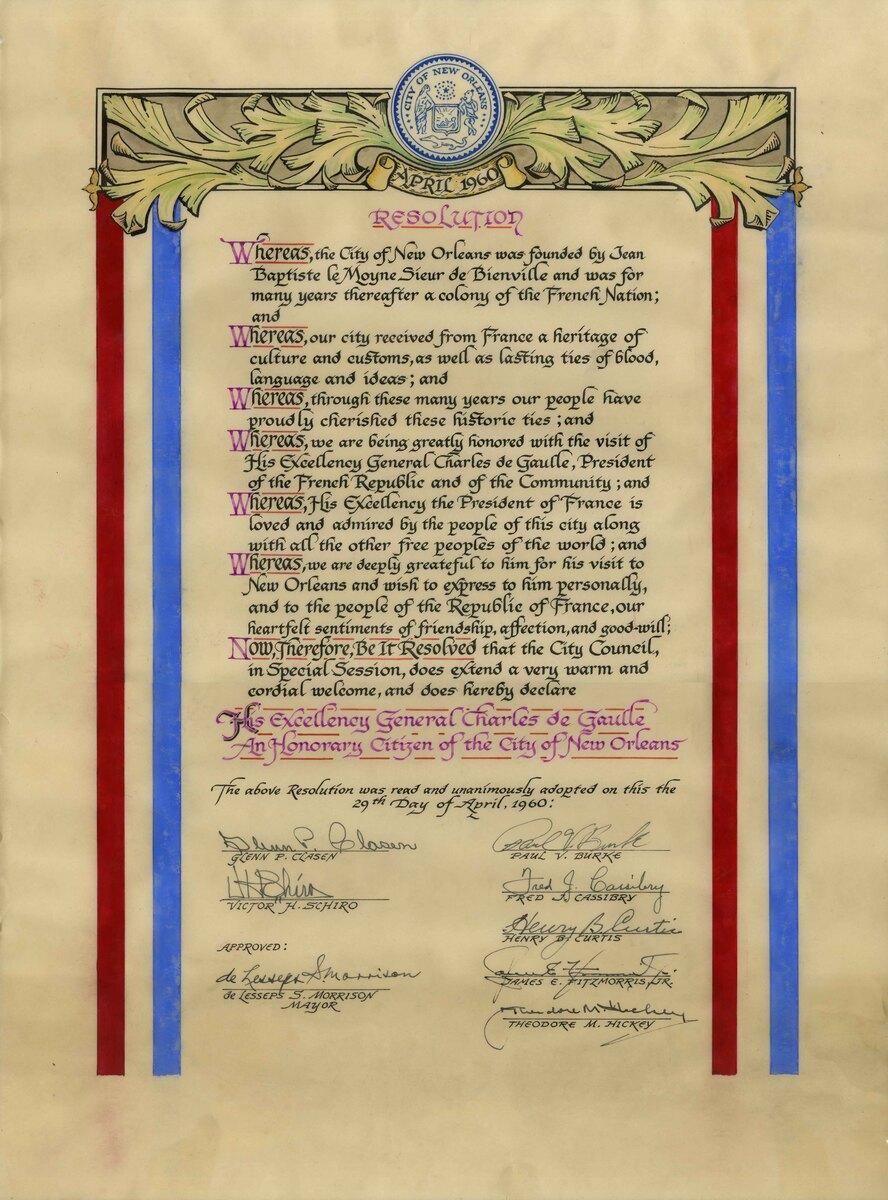 CITY OF NEW ORLEANS
APRIL 1960
RESOLUTION
Whereas, the City of New Orleans was founded by Jean
Baptiste le Moyne Sieur de Bienville and was for
many years thereafter a colony of the French Nation;
and
Whereas, our city received from France a heritage of
culture and customs, as well as lasting ties of blood,
language and ideas; and
Whereas, through these many years our people have
proudly cherished these historic ties; and
Whereas, we are being greatly honored with the visit of
His Excellency General Charles de Gaulle, President
of the French Republic and of the Community; and
Whereas, His Excellency the President of France is
loved and admired by the people of this city along
with all the other free peoples of the world; and
Whereas, we are deeply greateful to him for his visit to
New Orleans and wish to express to him personally,
and to the people of the Republic of France, our
heartfelt sentiments of friendship, affection, and good-will;
Now, Therefore, Be It Resolved that the City Council,
in Special Session, does extend a very warm and
cordial welcome, and does hereby declare
His Excellency General Charles de Gaulle
An Honorary Citizen of the City of New Orleans
The above Resolution was read and unanimously adopted on this the
29th Day of April, 1960:
Glenn P. Clasen
GLENN P. CLASEN
VICTOR H. SCHIRO
APPROVED:
de Lesseps S Morrison
de LESSEPS S. MORRISON
MAYOR
Paul V. Burke
PAUL V. BURKE
Fred J. Cassibry
FRED J. CASSIBRY
Henry B. Curtis
HENRY B. CURTIS
JAMES E. FITZMORRIS, JR.
Theodore M. Hickey
THEODORE M. HICKEY